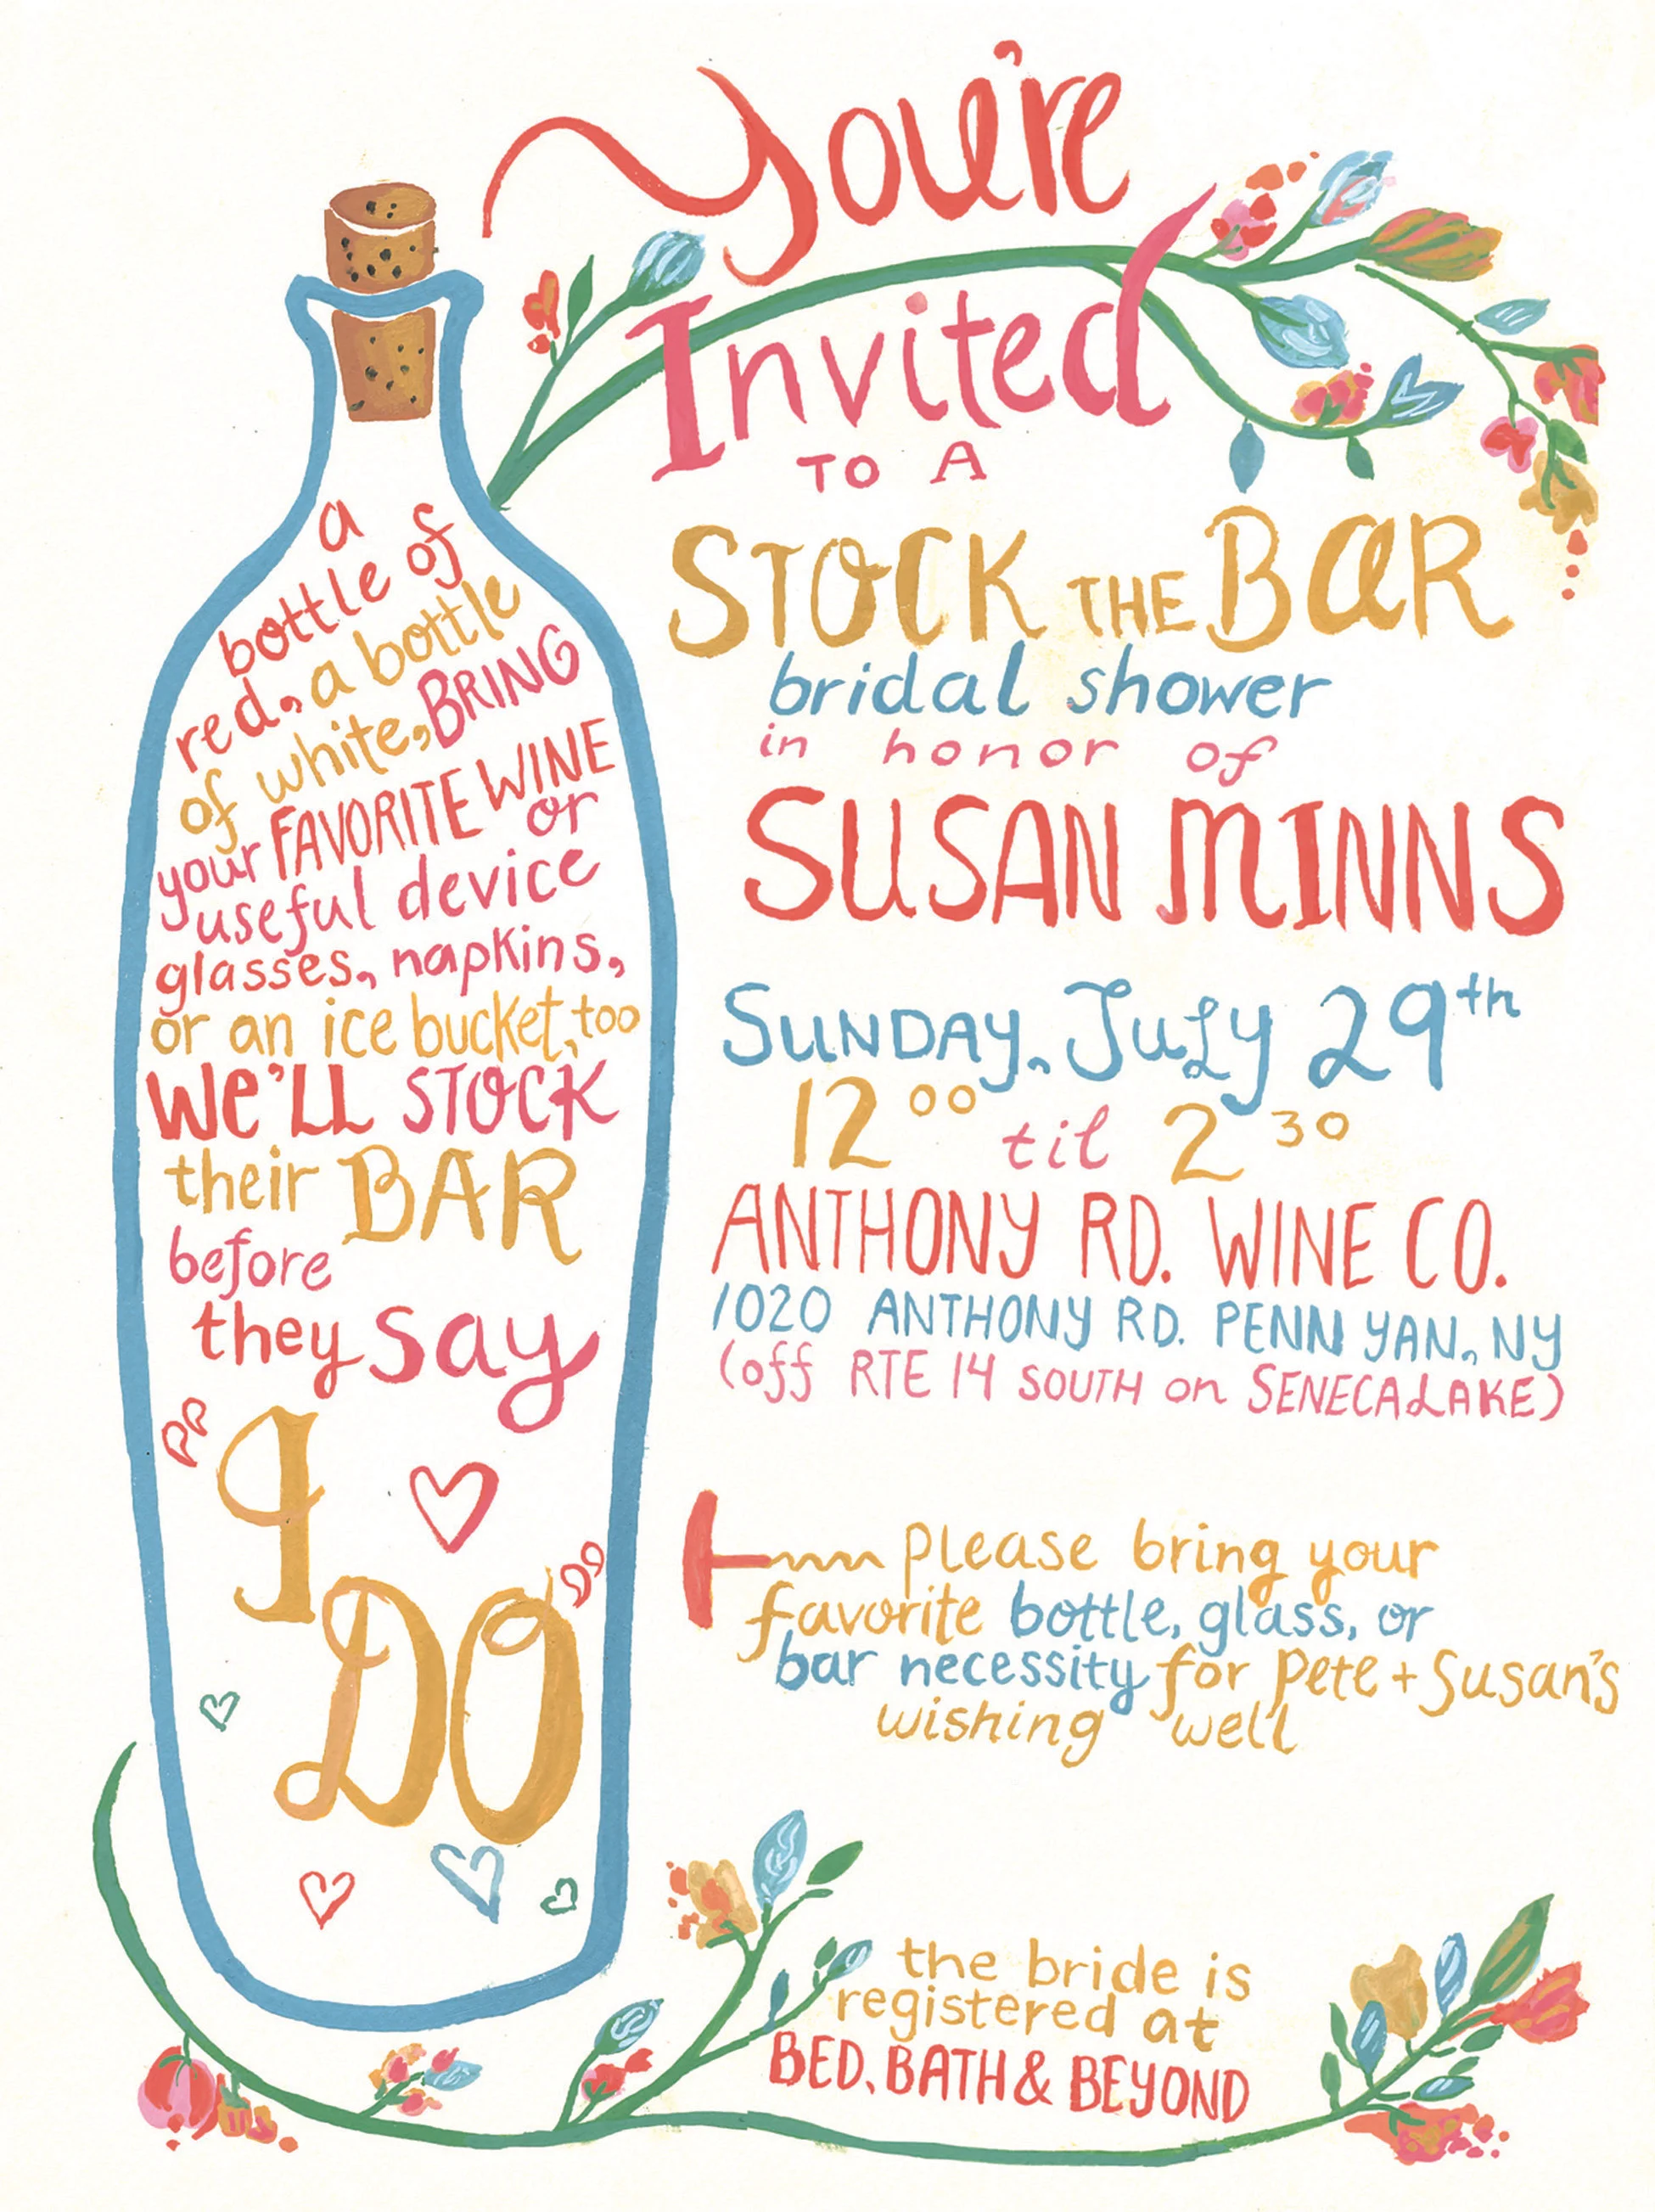 You're
Invited
TO A
STOCK THE BAR
bridal shower
in honor of
SUSAN MINNS
SUNDAY, JULY 29th
12 00 til 2 30
ANTHONY RD. WINE CO.
1020 ANTHONY RD. PENN YAN, NY
(off RTE 14 SOUTH on SENECA LAKE)
please bring your
favorite bottle, glass, or
bar necessity for Pete + Susan's
wishing well
the bride is
registered at
BED, BATH & BEYOND
a
bottle of
red, a bottle
of white, BRING
your FAVORITE WINE
or
useful device
glasses, napkins,
or an ice bucket, too
We'LL STOCK
their BAR
before
they say
"I
DO"